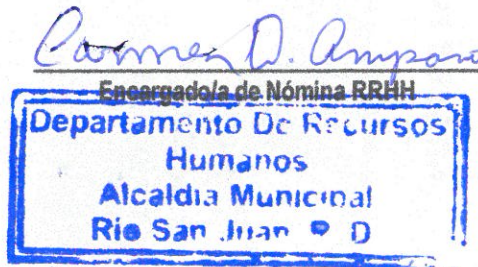 Carmen D. Amparo
Encargado/a de Nómina RRHH
Departamento De Recursos
Humanos
Alcaldia Municipal
Rio San Juan R D